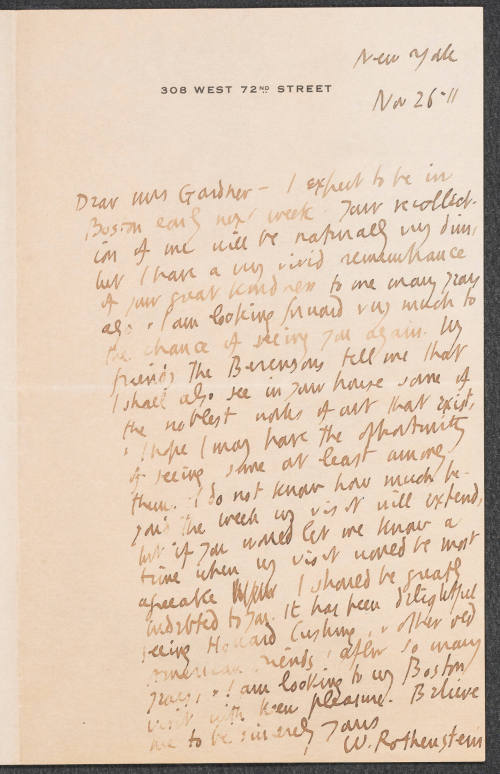 New York
308 WEST 72ND STREET
Nov 26 - 11
Dear Mrs Gardner – I expect to be in
Boston early next week. Your recollect-
ion of me will be naturally very dim,
but I have a very vivid remembrance
of your great kindness to me many years
ago, & I am looking forward very much to
the chance of seeing you again. My
friends the Berensons tell me that
I shall also see in your house some of
the noblest works of art that exist,
& I hope I may have the opportunity
of seeing some at least among
them. I do not know how much be-
yond the week my visit will extend,
but if you would let me know a
time when my visit would be most
agreeable I should be greatly
indebted to you. It has been delightful
seeing Howard Cushing, & other old
American friends, after so many
years, & I am looking to my Boston
visit with keen pleasure. Believe
me to be sincerely yours
W. Rothenstein